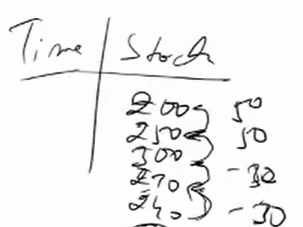 Time Stock
200 50
250 50
300
270 -30
240 -30